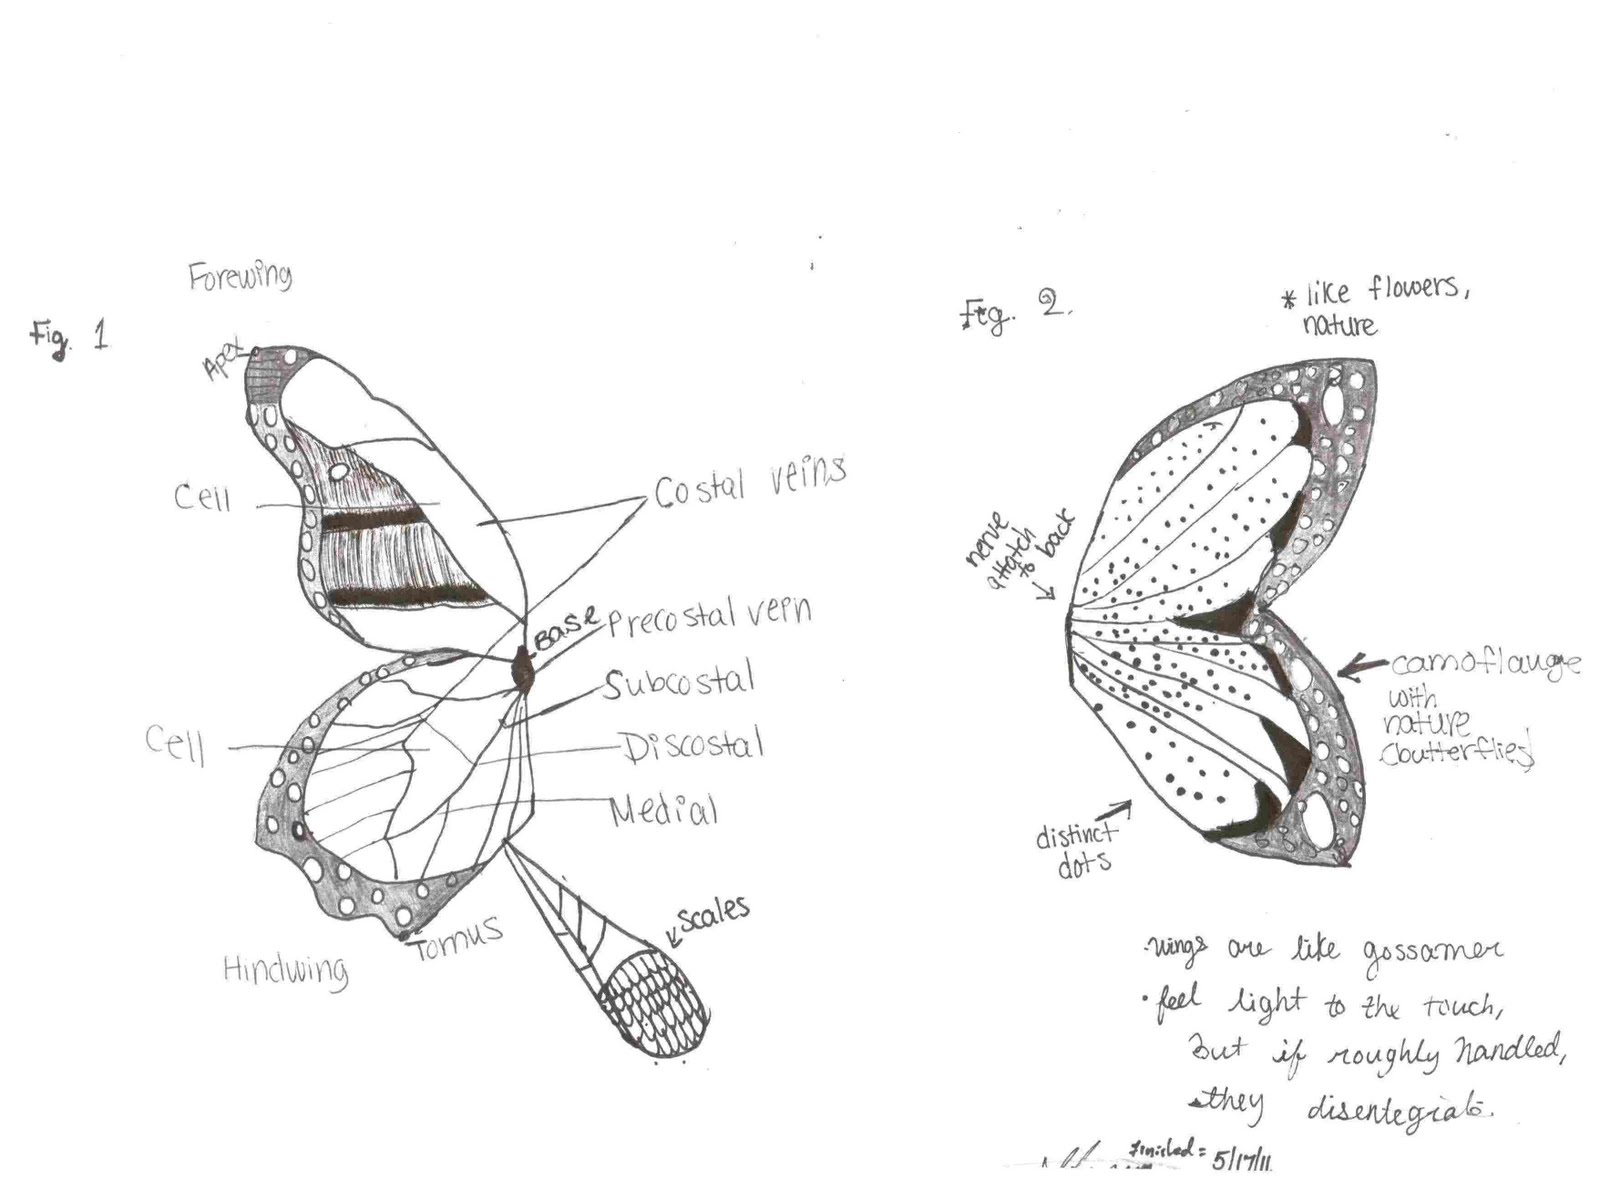 Forewing
Fig. 1
Apex
Cell
Costal veins
Base
Precostal vein
Subcostal
Cell
Discostal
Medial
Scales
Tornus
Hindwing
Fig. 2.
* like flowers,
nature
nerve
attatch
to back
camoflauge
with
nature
(butterflies)
distinct
dots
·wings are like gossamer
• feel light to the touch,
But if roughly handled,
they disentegrate.
Finished = 5/17/11